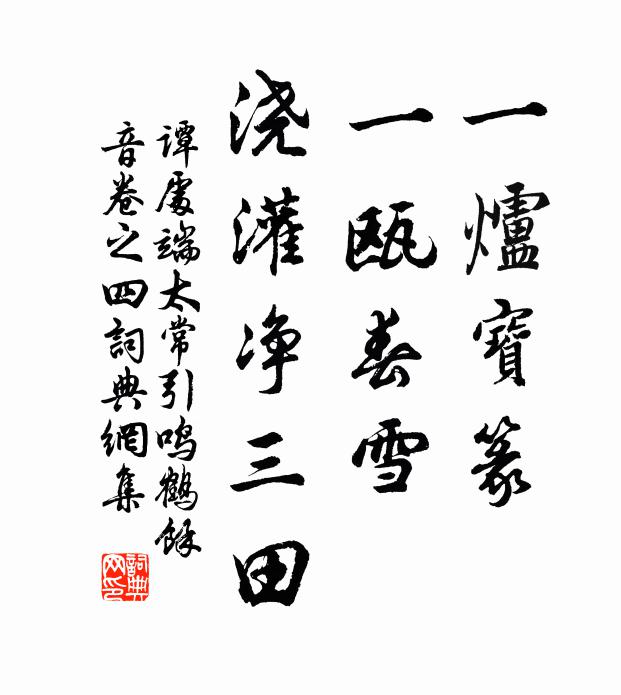 一爐寶篆
一甌春雪
浇灌净三田
譚處端太常引鳴鶴餘
音卷之四詞典網集
詞典
网印